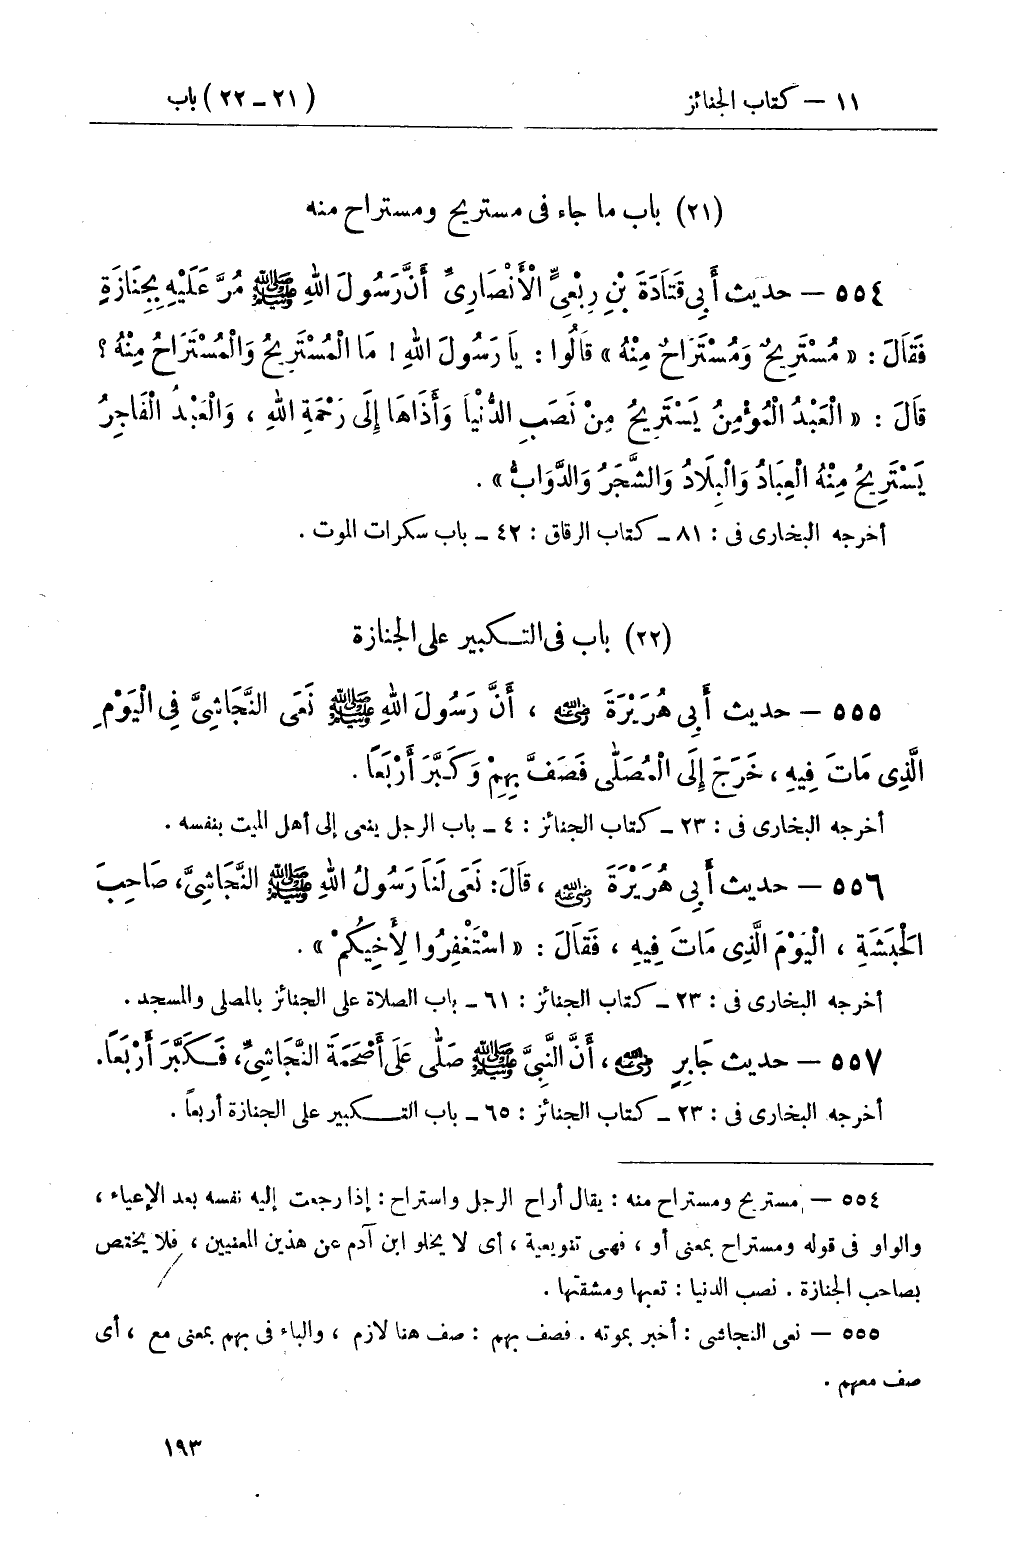 ١١ – كتاب الجنائز (٢١ – ٢٢) باب
(٢١) باب ما جاء فى مستريح ومستراح منه
٥٥٤ – حديث أَبِي قَتَادَةَ بْنِ رِبْعِيٍّ الْأَنْصَارِىِّ أَنَّ رَسُولَ اللهِ ﷺ مُرَّ عَلَيْهِ بِجَنَازَةٍ
فَقَالَ : « مُسْتَرِيحٌ وَمُسْتَرَاحٌ مِنْهُ » قَالُوا : يَا رَسُولَ اللهِ ! مَا الْمُسْتَرِيحُ وَالْمُسْتَرَاحُ مِنْهُ ؟
قَالَ : « الْعَبْدُ الْمُؤْمِنُ يَسْتَرِيحُ مِنْ نَصَبِ الدُّنْيَا وَأَذَاهَا إِلَى رَحْمَةِ اللهِ ، وَالْعَبْدُ الْفَاجِرُ
يَسْتَرِيحُ مِنْهُ الْعِبَادُ وَالْبِلَادُ وَالشَّجَرُ وَالدَّوَابُّ » .
أخرجه البخارى فى : ٨١ – كتاب الرقاق : ٤٢ – باب سكرات الموت .
(٢٢) باب فى التكبير على الجنازة
٥٥٥ – حديث أَبِي هُرَيْرَةَ رضي الله عنه ، أَنَّ رَسُولَ اللهِ ﷺ نَعَى النَّجَاشِيَّ فِي الْيَوْمِ
الَّذِى مَاتَ فِيهِ ، خَرَجَ إِلَى الْمُصَلَّى فَصَفَّ بِهِمْ وَكَبَّرَ أَرْبَعًا .
أخرجه البخارى فى : ٢٣ – كتاب الجنائز : ٤ – باب الرجل ينعى إلى أهل الميت بنفسه .
٥٥٦ – حديث أَبِي هُرَيْرَةَ رضي الله عنه ، قَالَ: نَعَى لَنَا رَسُولُ اللهِ ﷺ النَّجَاشِيَّ، صَاحِبَ
الْحَبَشَةِ ، الْيَوْمَ الَّذِى مَاتَ فِيهِ ، فَقَالَ : « اسْتَغْفِرُوا لِأَخِيكُمْ » .
أخرجه البخارى فى : ٢٣ – كتاب الجنائز : ٦١ – باب الصلاة على الجنائز بالمصلى والمسجد .
٥٥٧ – حديث جَابِرٍ رضي الله عنه ، أَنَّ النَّبِيَّ ﷺ صَلَّى عَلَى أَصْحَمَةَ النَّجَاشِيِّ، فَكَبَّرَ أَرْبَعًا.
أخرجه البخارى فى : ٢٣ – كتاب الجنائز : ٦٥ – باب التكبير على الجنازة أربعاً .
٥٥٤ – مستريح ومستراح منه : يقال أراح الرجل واستراح : إذا رجعت إليه نفسه بعد الإعياء ،
والواو فى قوله ومستراح بمعنى أو ، فهى تنويعية ، أى لا يخلو ابن آدم عن هذين المعنيين ، فلا يختص
بصاحب الجنازة . نصب الدنيا : تعبها ومشقتها .
٥٥٥ – نعى النجاشى : أخبر بموته . فصف بهم : صف هنا لازم ، والباء فى بهم بمعنى مع ، أى
صف معهم .
١٩٣